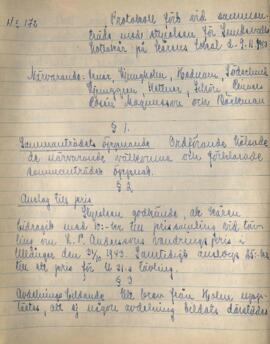 No 172
Protokoll fört vid samman-
träde med styrelsen för Sundsvalls
på Kårens lokal
Närvarande: Ekman, Ljungholm, Hedman, Söderlind
Ljunggren, Kettner,
Magnusson och Bäckman
§ 1.
Sammanträdets öppnande. Ordförande hälsade
de närvarande välkomna och förklarade
sammanträdet öppnat.
§ 2
Anslag till pris
Styrelsen godkände, att Kåren
bidragit med 10:- kr till prissamling vid täv-
ling om K. P. Anderssons vandringspris i
Ullånger den 31/10 1943. Samtidigt anslogs 25:- kr
till ett pris för tävling.
§ 3
Avdelnings bildande. Ett brev från Holm, uppl-
ystes, att ej någon avdelning bildats därstädes